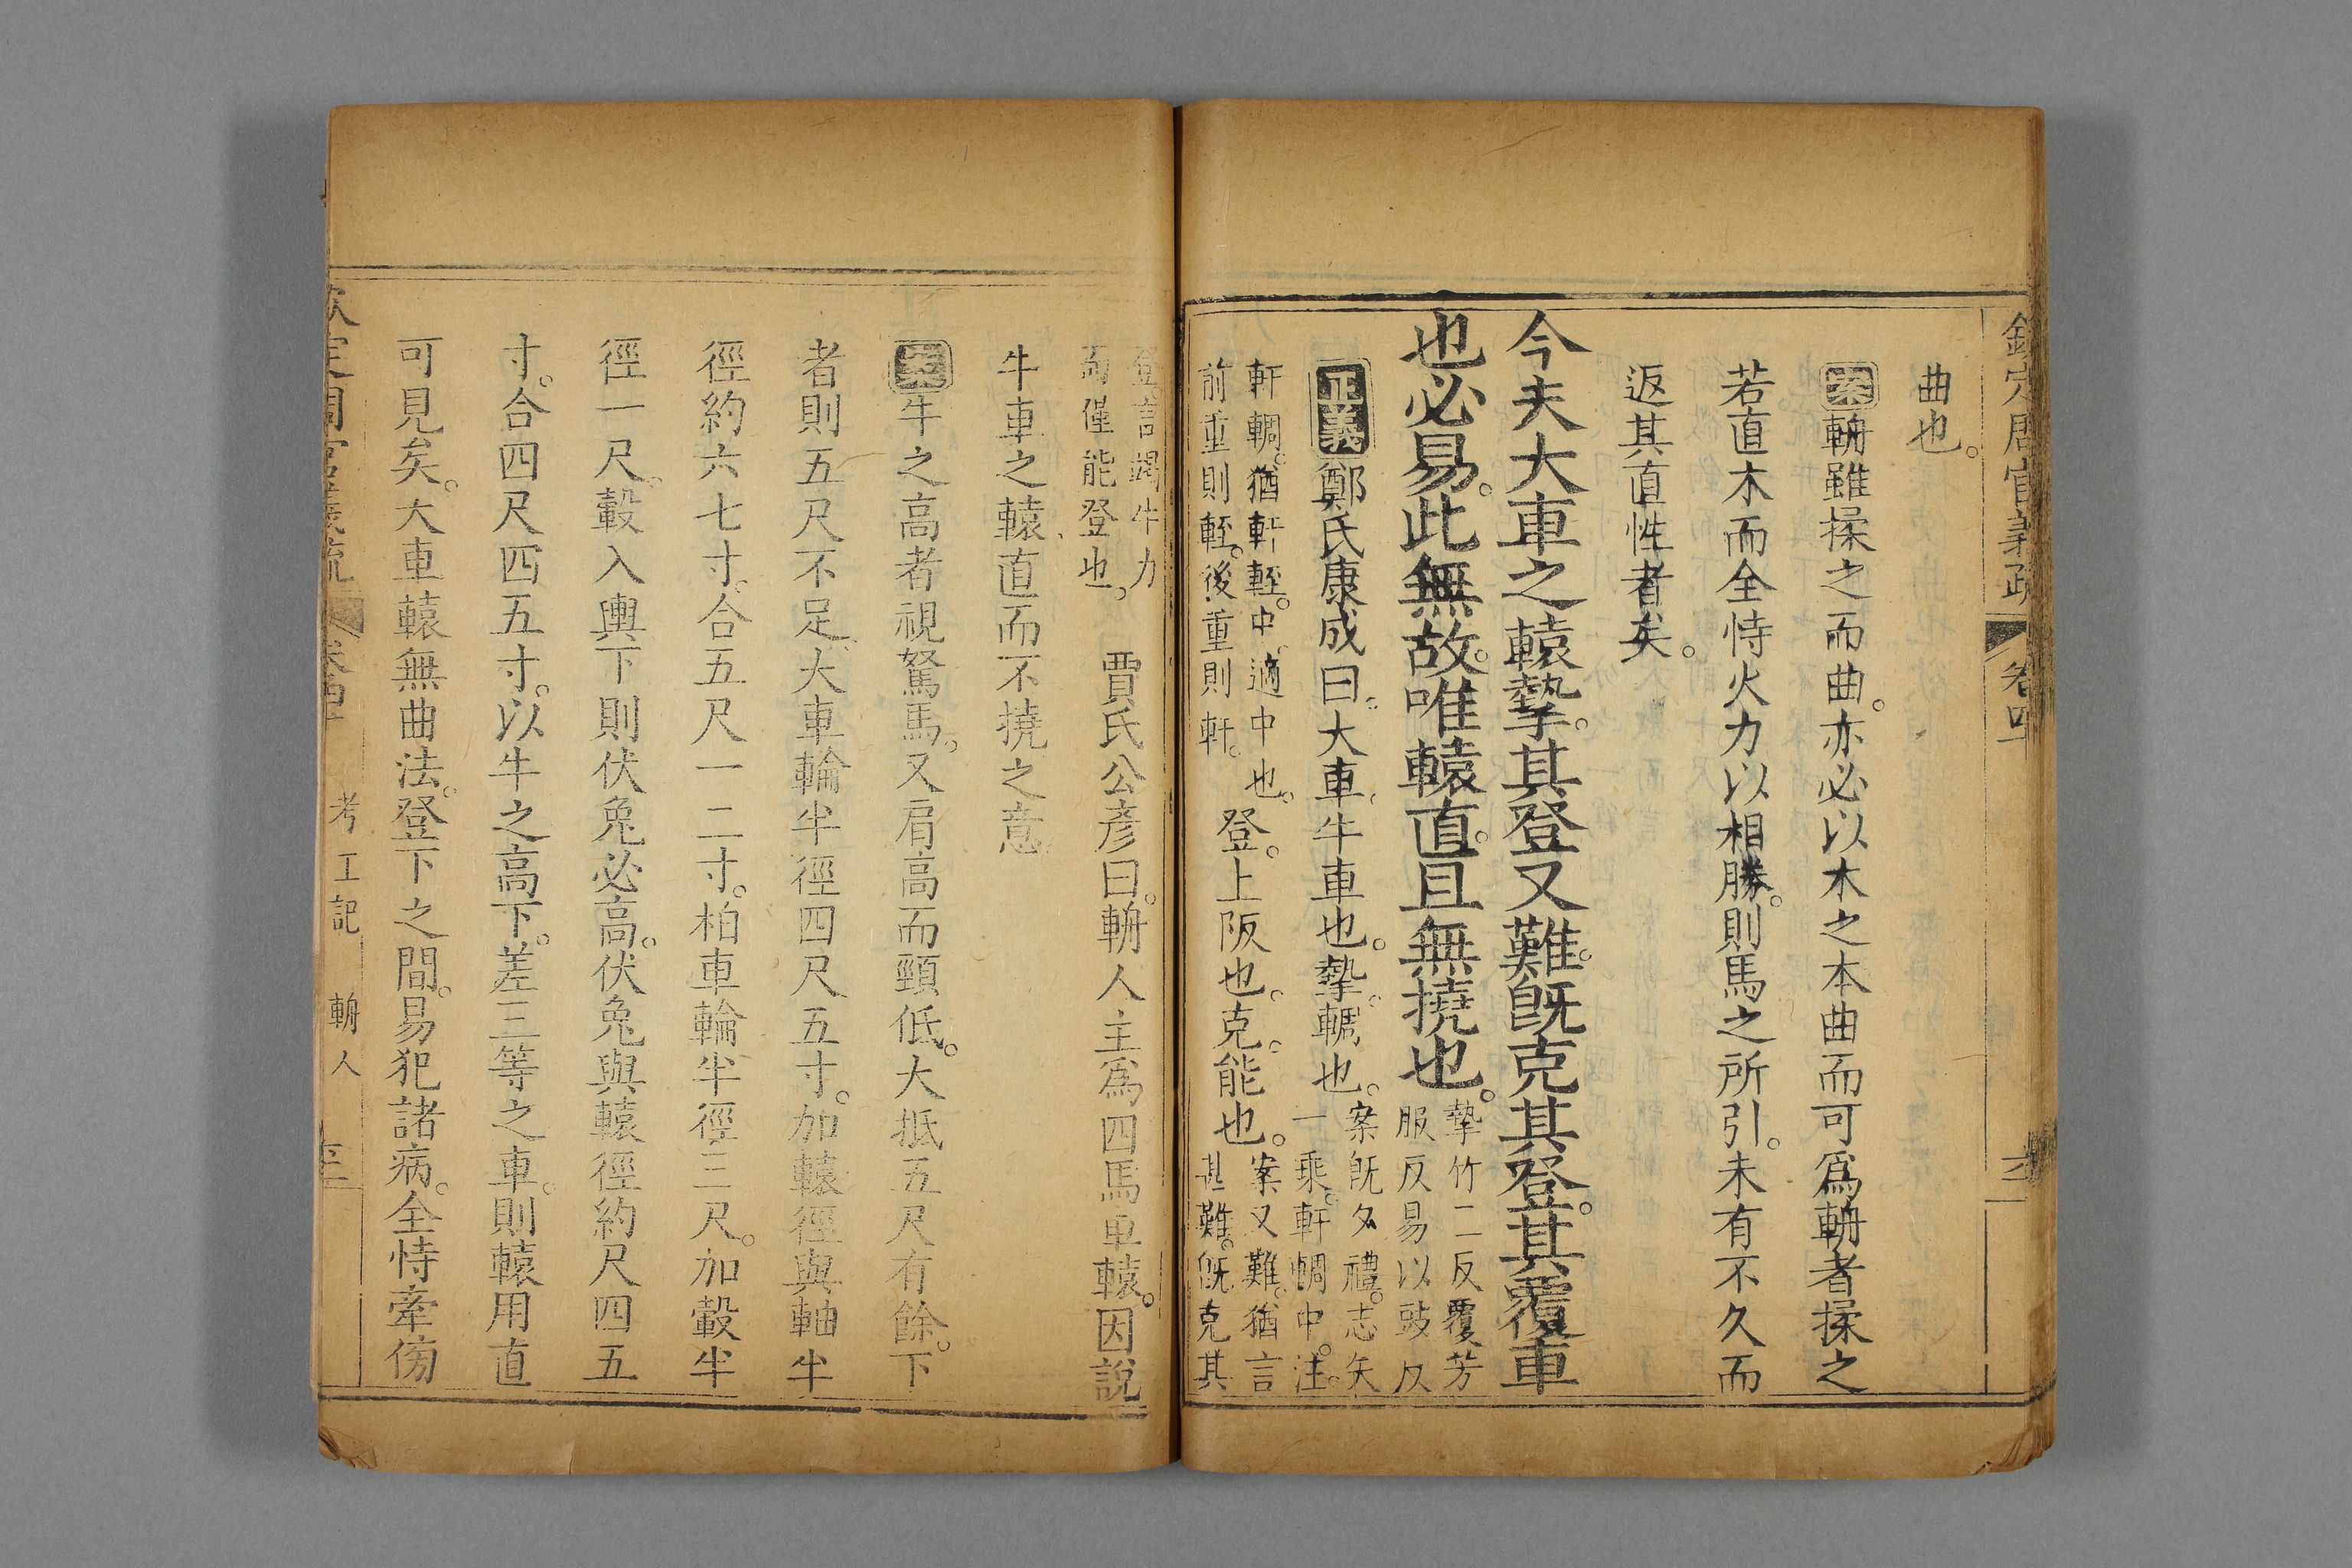 欽定周官義疏 卷四
曲也。
案輈雖揉之而曲。亦必以木之本曲而可爲輈者揉之
若直木而全恃火力以相勝。則馬之所引。未有不久而
返其直性者矣。
今夫大車之轅摯。其登又難。旣克其登。其覆車
也必易。此無故。唯轅直。且無撓也。
摯竹二反覆芳
服反易以豉反
正義鄭氏康成曰。大車、牛車也。摯。輖也。
案旣夕禮。志矢
一乘。軒輖中。注。
軒輖。猶軒輊。中。適中也。
前重則輊。後重則軒。
登。上阪也。克。能也。
案又難。猶言
甚難。旣克其
登。言竭牛力
而僅能登也。
賈氏公彥曰。輈人主爲四馬車轅。因說
牛車之轅、直而不撓之意
案牛之高者視駑馬。又肩高而頸低。大抵五尺有餘。下
者則五尺不足、大車輪半徑四尺五寸。加轅徑與軸半
徑約六七寸。合五尺一二寸。柏車輪半徑三尺。加轂半
徑一尺。轂入輿下則伏兔必高。伏兔與轅徑約尺四五
寸。合四尺四五寸。以牛之高下。差三等之車。則轅用直
可見矣。大車轅無曲法。登下之間。易犯諸病。全恃牽傍
欽定周官義疏 卷四 考工記 輈人